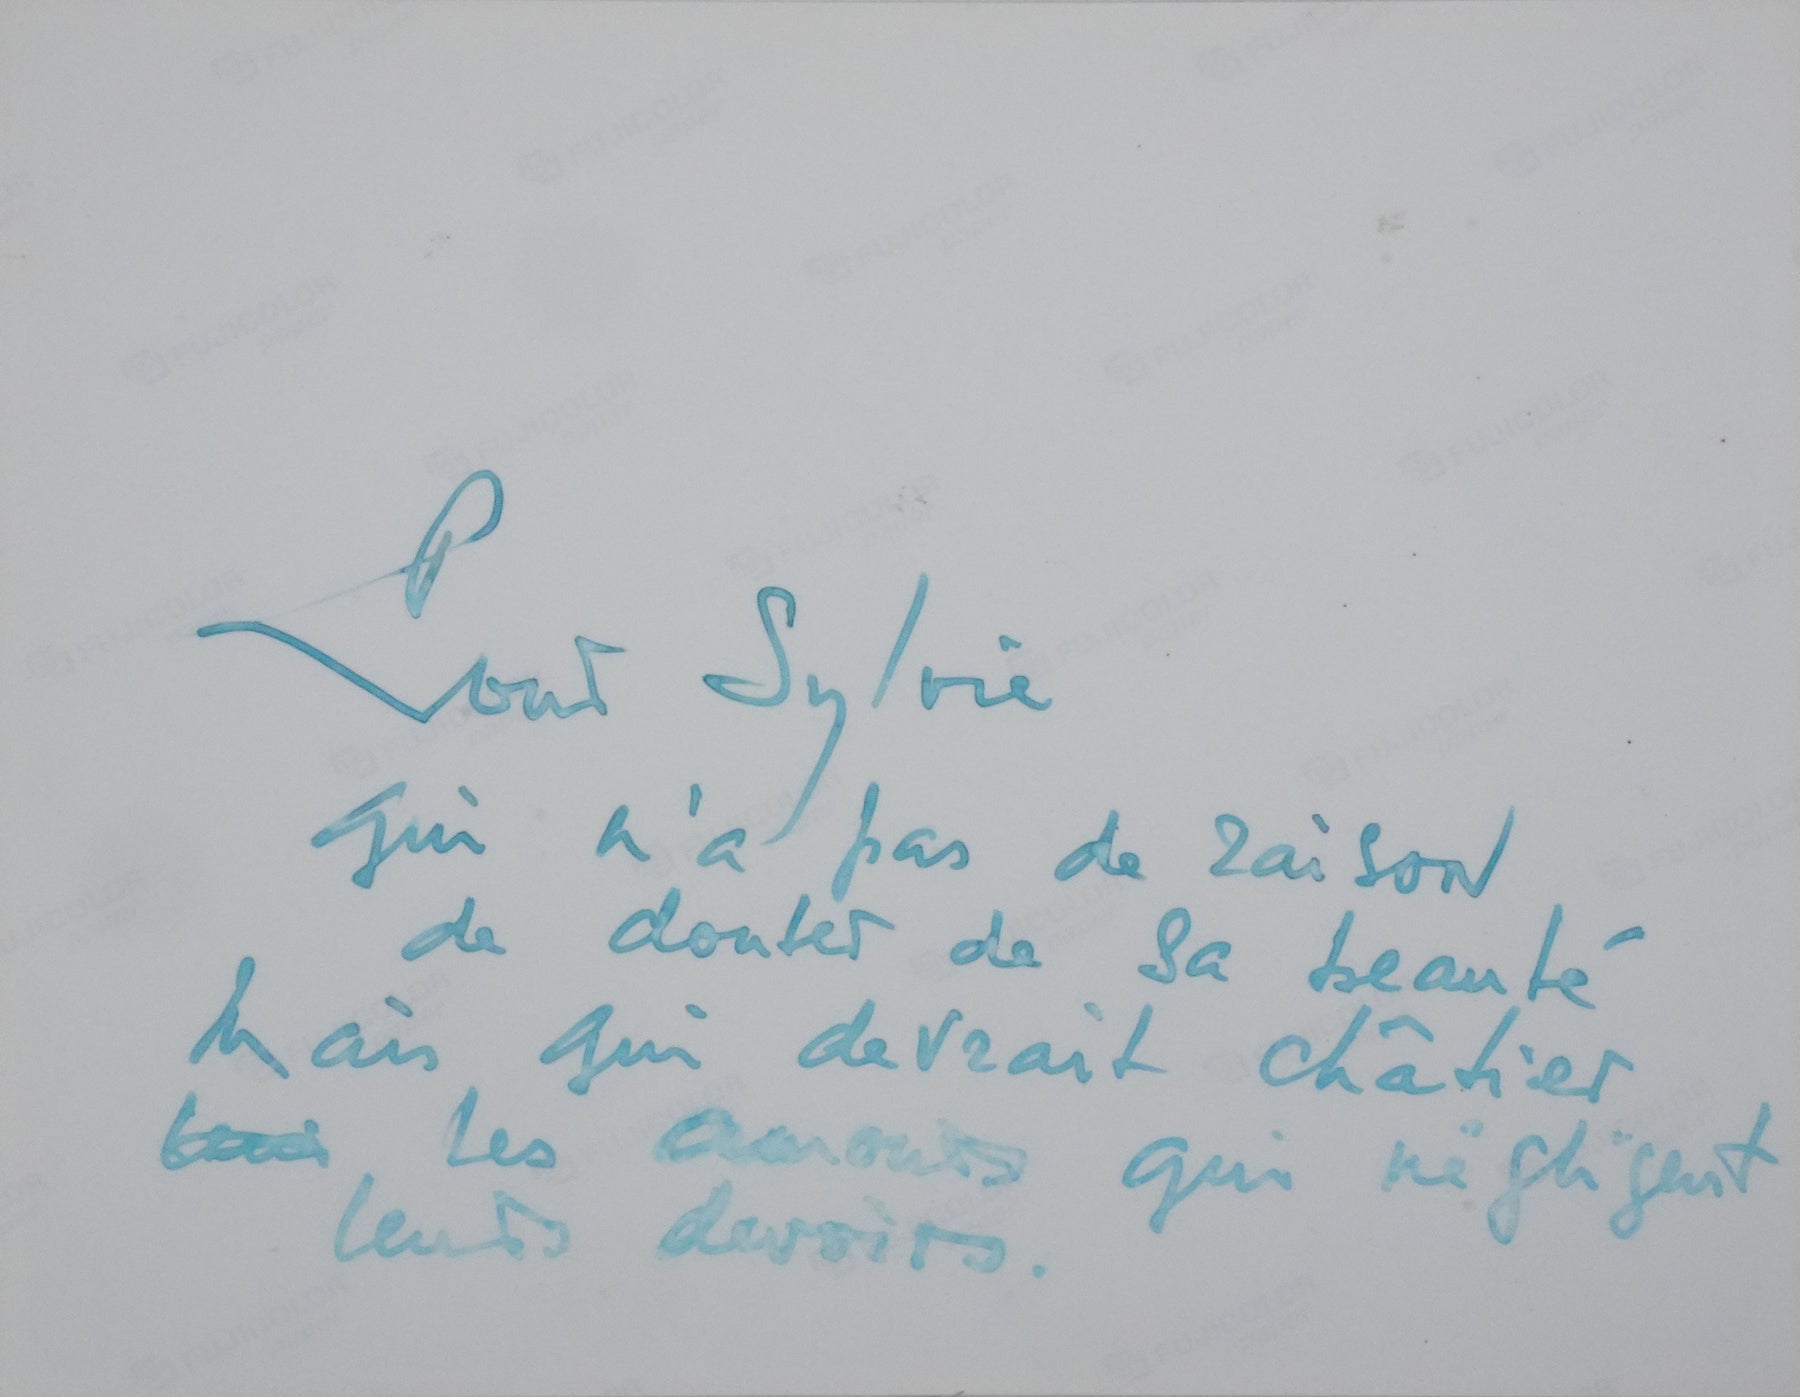 Pour Sylvie
qui n'a pas de raison
de douter de sa beauté
Mais qui devrait châtier
les amours qui négligent
leurs devoirs.